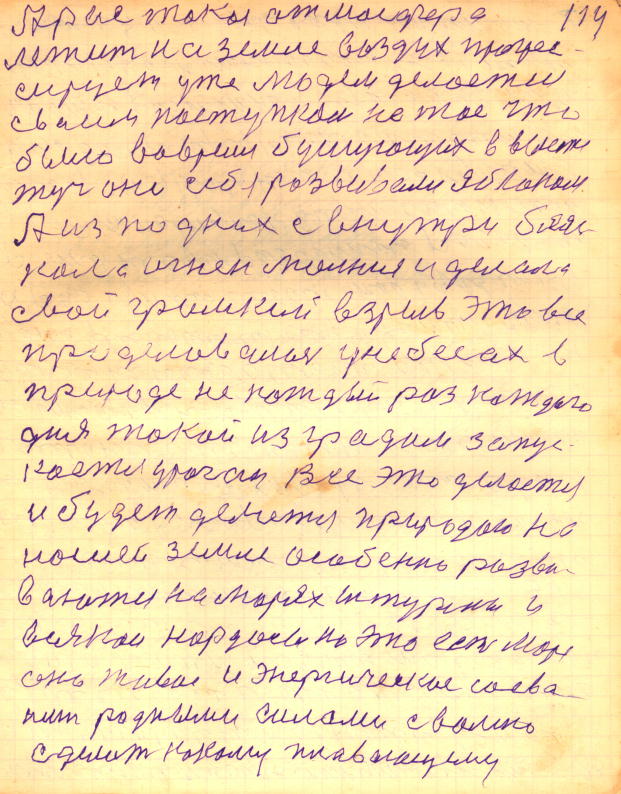 А рас токоя отмосфера 114
лежит на земле воздух прогре-
сирует уже людем делоется
своим поступком на тое что
было вовреми бушующих в высе
туч оне себя розвевали яблоком
А из под них с внутри блис-
кала огнем молния и делала
свой громкий взрыв Это все
проделовалося у небесах в
природе не каждый роз каждого
дня токой из градом запус-
коется урогом Все это делоется
и будет делотся природою на
нашей земле особенно розви-
ваются на морях штурмы и
всякой нордост но Это есть море
оно живое и Энергическое
родными силами своимо
сделоит кокому плавоющему